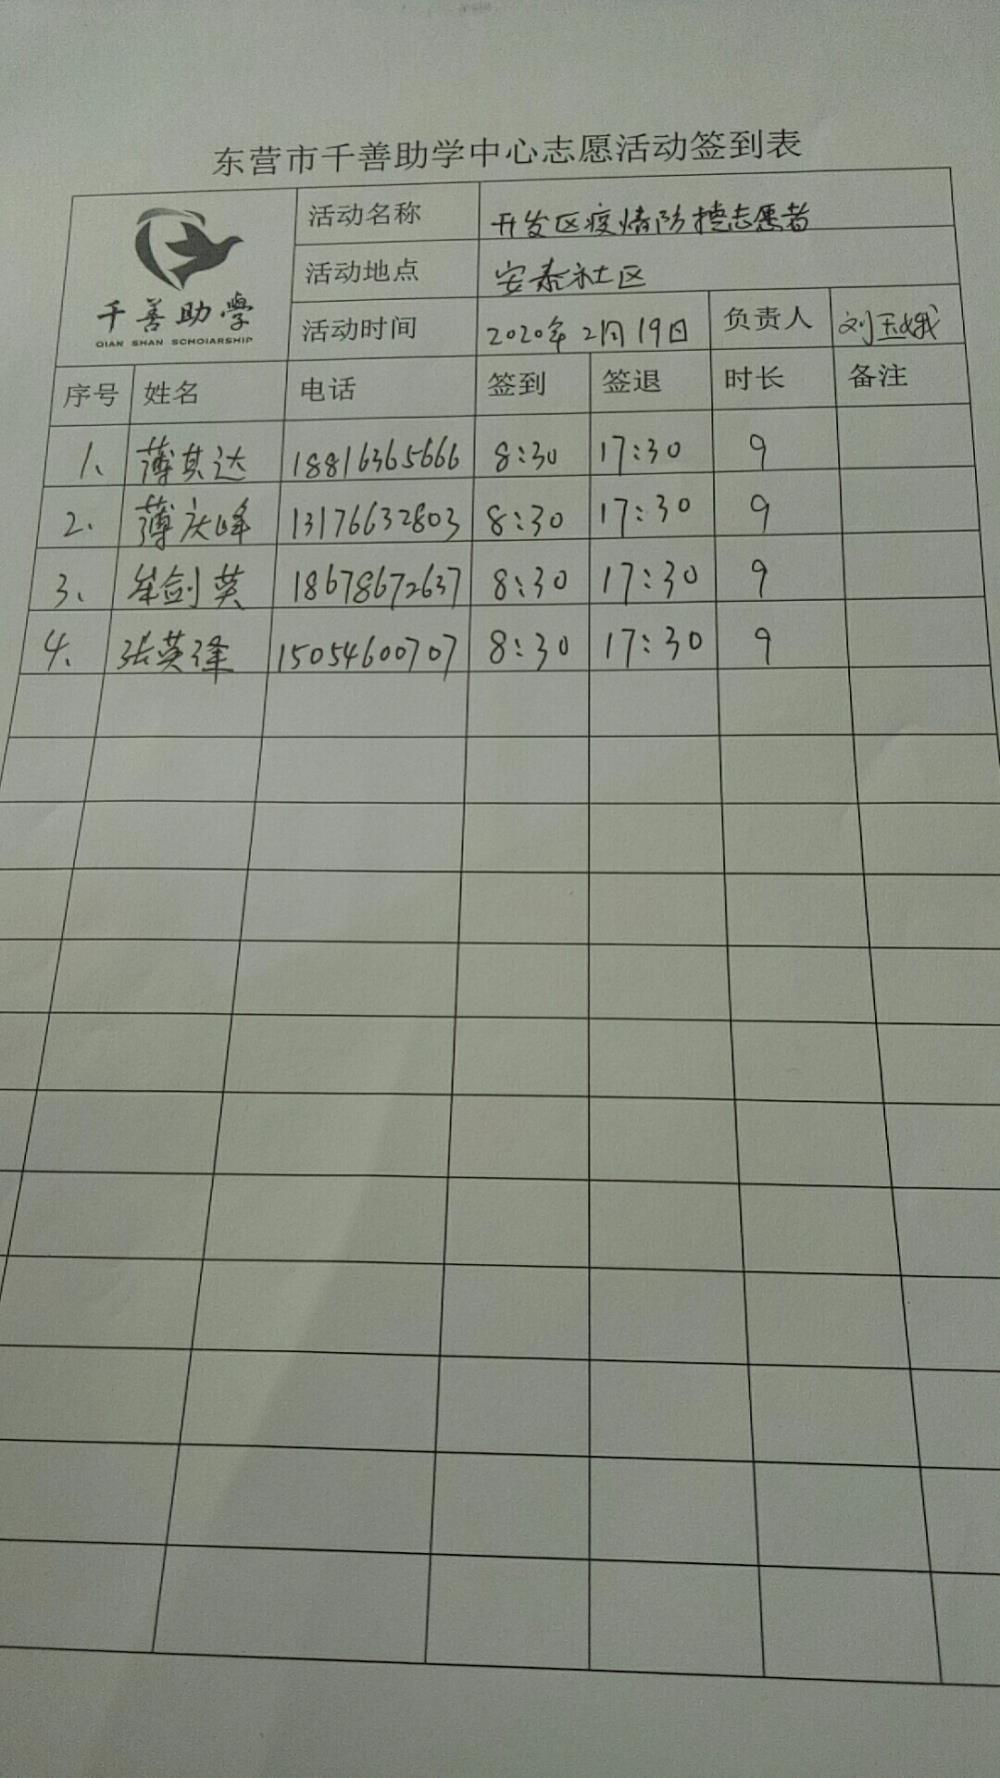 东营市千善助学中心志愿活动签到表
千善助学
QIAN SHAN SCHOIARSHIP
活动名称 开发区疫情防控志愿者
活动地点 安泰社区
活动时间 2020年2月19日 负责人 刘玉娥
序号 姓名 电话 签到 签退 时长 备注
1、 薄其达 18816365666 8:30 17:30 9
2、 薄庆峰 13176632803 8:30 17:30 9
3、 牟剑英 18678672637 8:30 17:30 9
4、 张英锋 15054600707 8:30 17:30 9